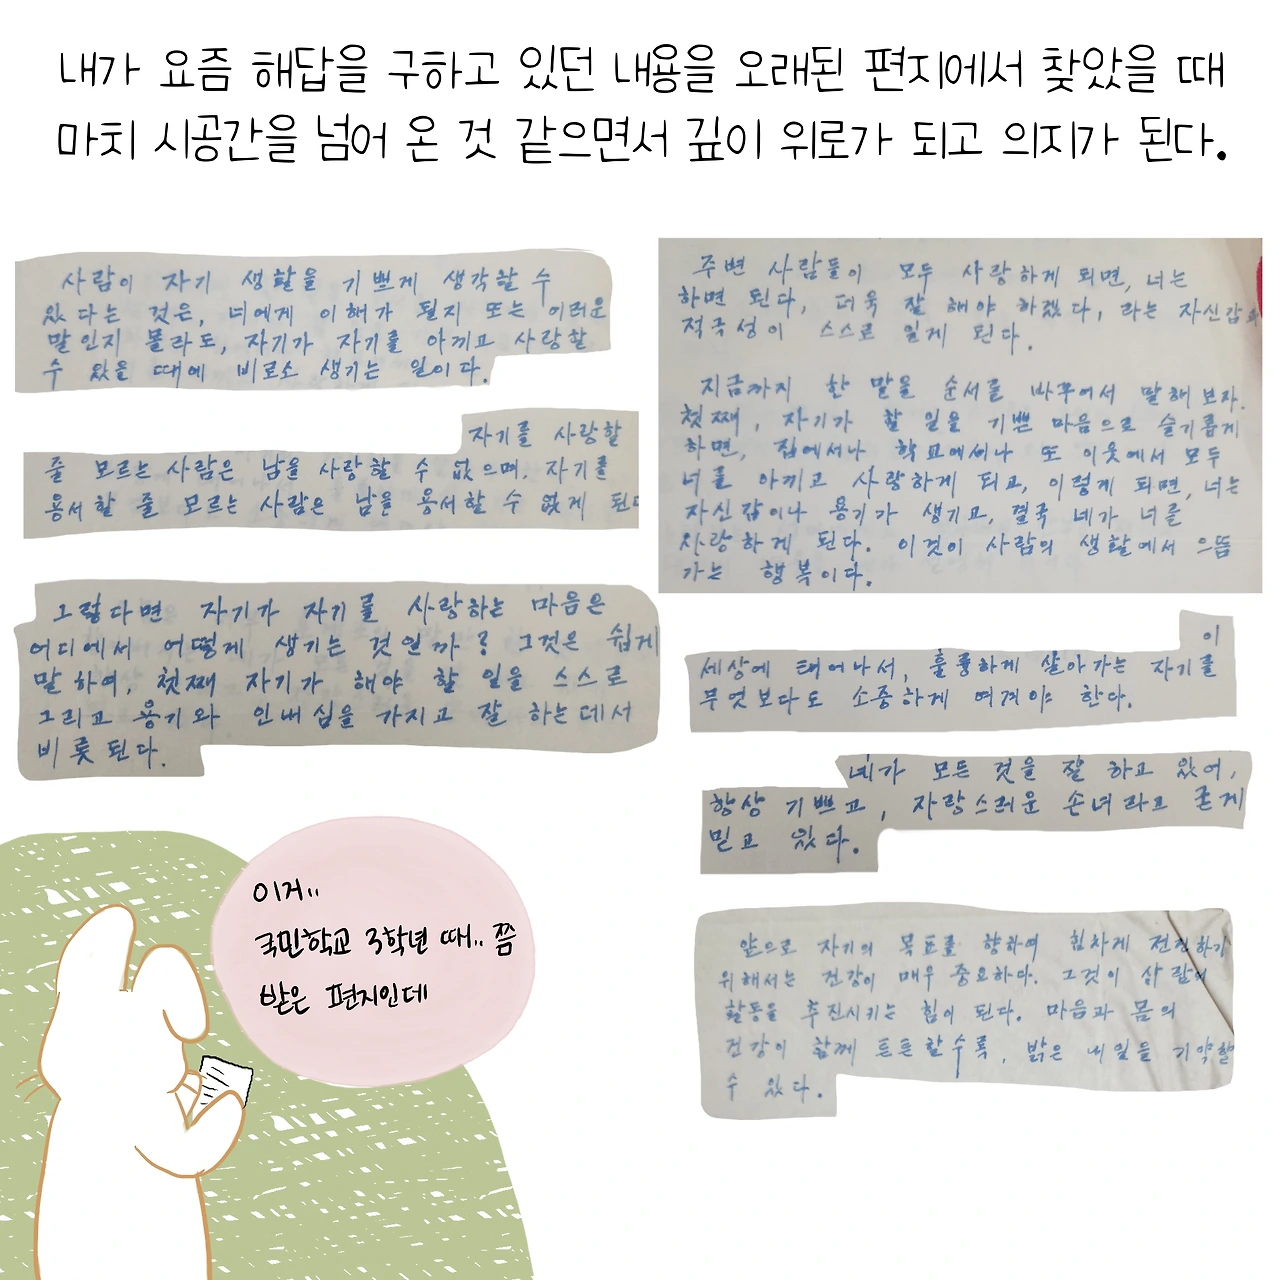 내가 요즘 해답을 구하고 있던 내용을 오래된 편지에서 찾았을 때
마치 시공간을 넘어 온 것 같으면서 깊이 위로가 되고 의지가 된다.
사람이 자기 생활을 기쁘게 생각할 수
있다는 것은, 너에게 이해가 될지 또는 어려운
말인지 몰라도, 자기가 자기를 아끼고 사랑할
수 있을 때에 비로소 생기는 일이다.
자기를 사랑할
줄 모르는 사람은 남을 사랑할 수 없으며, 자기를
용서할 줄 모르는 사람은 남을 용서할 수 없게 된다
그렇다면 자기가 자기를 사랑하는 마음은
어디에서 어떻게 생기는 것인가? 그것은 쉽게
말하여, 첫째 자기가 해야 할 일을 스스로
그리고 용기와 인내심을 가지고 잘 하는데서
비롯된다.
이거..
국민학교 3학년 때.. 쯤
받은 편지인데
주변 사람들이 모두 사랑하게 되면, 너는
하면 된다, 더욱 잘 해야 하겠다, 라는 자신감과
적극성이 스스로 일게 된다.
지금까지 한 말을 순서를 바꾸어서 말해 보자.
첫째, 자기가 할 일을 기쁜 마음으로 슬기롭게
하면, 집에서나 학교에서나 또 이웃에서 모두
너를 아끼고 사랑하게 되고, 이렇게 되면, 너는
자신감이나 용기가 생기고, 결국 네가 너를
사랑하게 된다. 이것이 사람의 생활에서 으뜸
가는 행복이다.
이
세상에 태어나서, 훌륭하게 살아가는 자기를
무엇보다도 소중하게 여겨야 한다.
네가 모든 것을 잘 하고 있어,
항상 기쁘고, 자랑스러운 손녀라고 굳게
믿고 있다.
앞으로 자기의 목표를 향하여 힘차게 전진하기
위해서는 건강이 매우 중요하다. 그것이 사람의
활동을 추진시키는 힘이 된다. 마음과 몸의
건강이 함께 튼튼할수록, 밝은 내일을 기약할
수 있다.